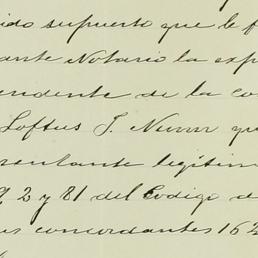 ido supuesto que le f
ante Notario la exp
endente de la co
Loftus J. Nunn qu
resentante legitim
2 y 81 del Codigo d
us concordantes 162